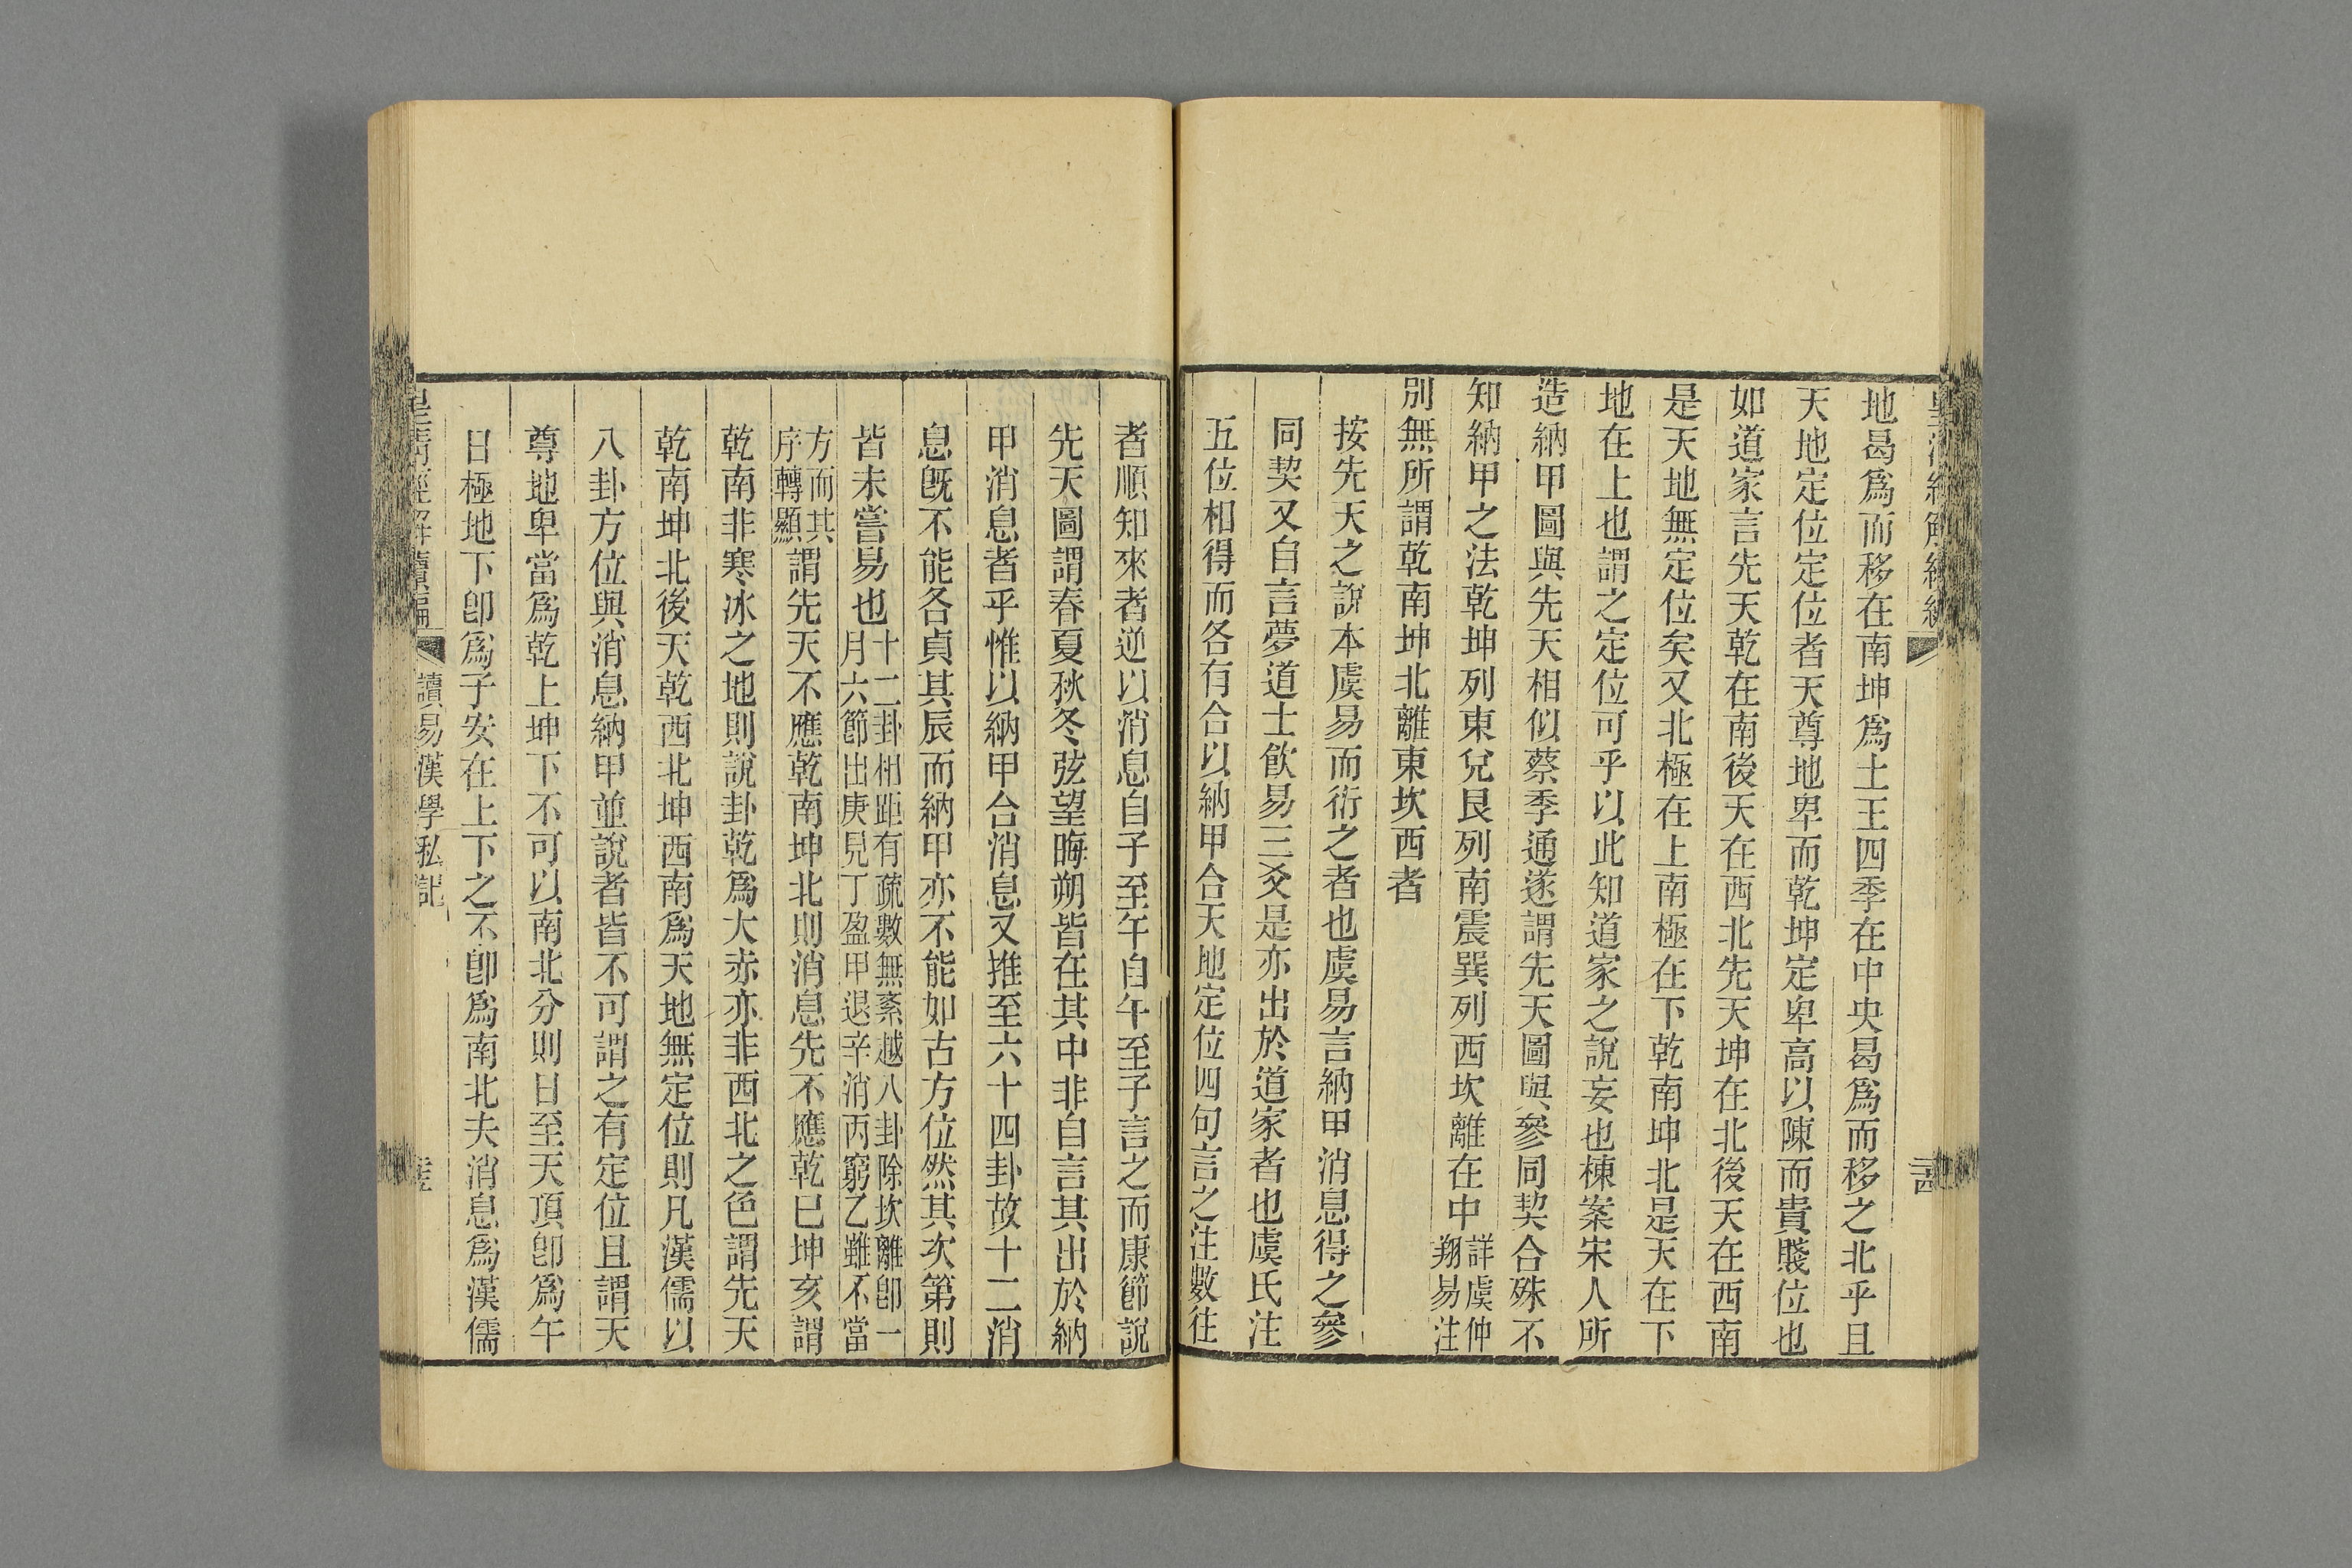 地曷爲而移在南坤爲土王四季在中央曷爲而移之北乎且
天地定位定位者天尊地卑而乾坤定卑高以陳而貴賤位也
如道家言先天乾在南後天在西北先天坤在北後天在西南
是天地無定位矣又北極在上南極在下乾南坤北是天在下
地在上也謂之定位可乎以此知道家之說妄也棟案宋人所
造納甲圖與先天相似蔡季通遂謂先天圖與參同契合殊不
知納甲之法乾坤列東兌艮列南震巽列西坎離在中詳虞仲翔易注
別無所謂乾南坤北離東坎西者
按先天之說本虞易而衍之者也虞易言納甲消息得之參
同契又自言夢道士飲易三爻是亦出於道家者也虞氏注
五位相得而各有合以納甲合天地定位四句言之注數往
者順知來者逆以消息自子至午自午至子言之而康節說
先天圖謂春夏秋冬弦望晦朔皆在其中非自言其出於納
甲消息者乎惟以納甲合消息又推至六十四卦故十二消
息既不能各貞其辰而納甲亦不能如古方位然其次第則
皆未嘗易也十二卦相距有疏數無紊越八卦除坎離卽一月六節出庚見丁盈甲退辛消丙窮乙雖不當
方而其序轉顯謂先天不應乾南坤北則消息先不應乾巳坤亥謂
乾南非寒冰之地則說卦乾爲大赤亦非西北之色謂先天
乾南坤北後天乾西北坤西南爲天地無定位則凡漢儒以
八卦方位與消息納甲並說者皆不可謂之有定位且謂天
尊地卑當爲乾上坤下不可以南北分則日至天頂卽爲午
日極地下卽爲子安在上下之不卽爲南北夫消息爲漢儒
皇清經解續編 讀易漢學私記